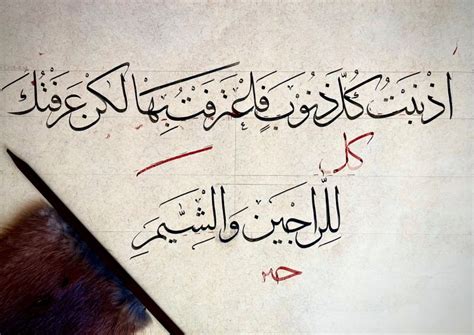 اذنبتُ كُلَّ ذنُوبٍ فَاعْترَفتُ بِهَا لكنْ عَرَفتُكَ
كل
لِلَّراجينَ وَالشِّيَمِ